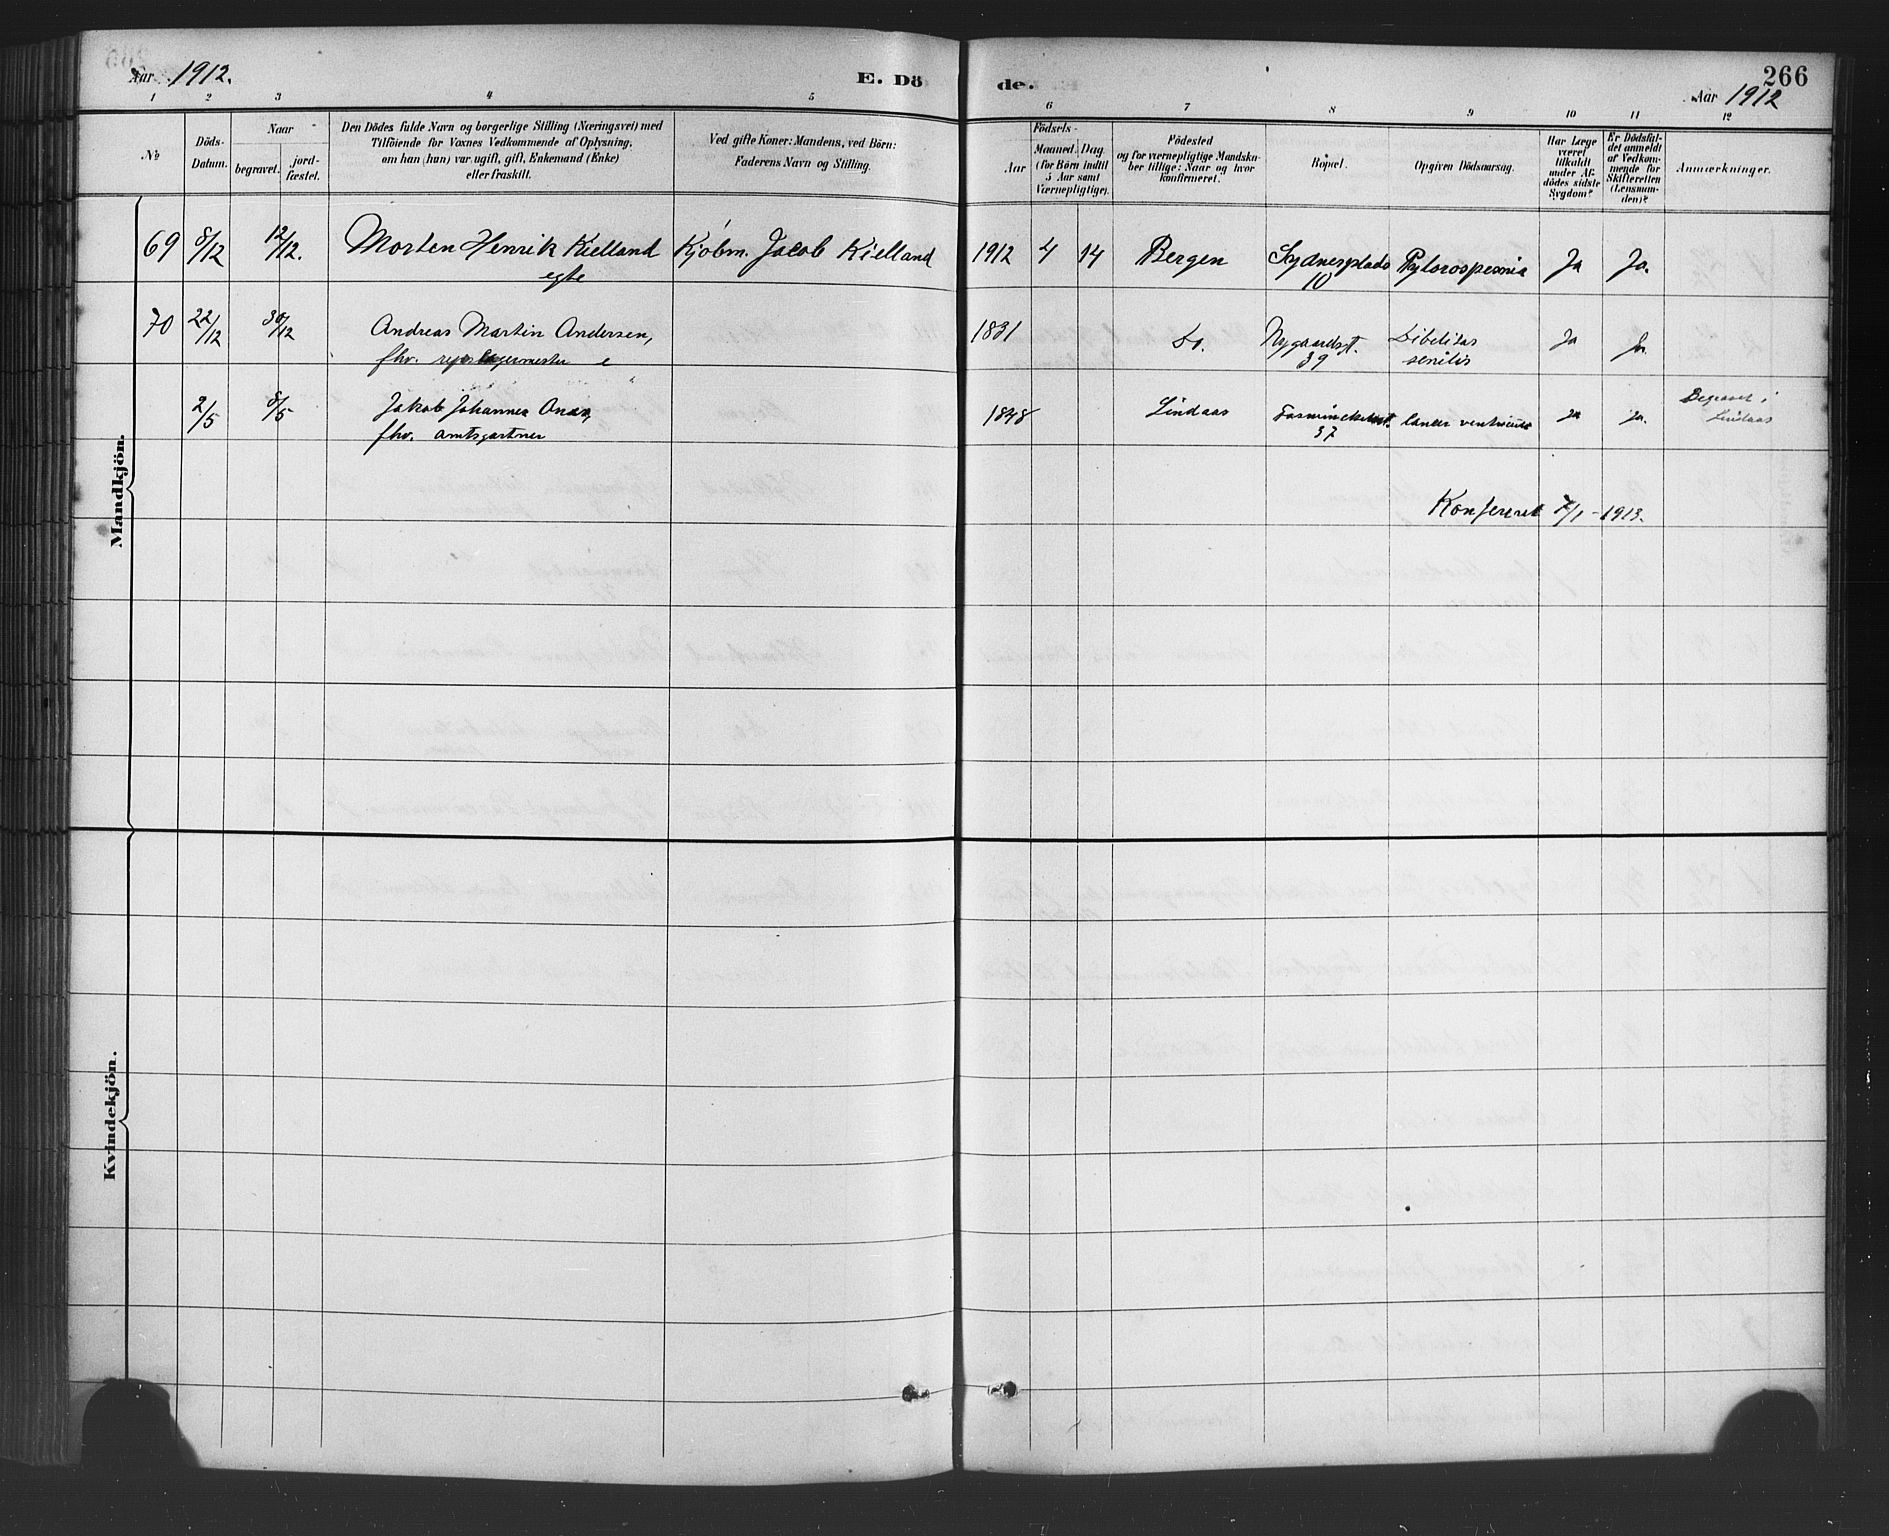 Aar 1912.
E. Döde.
266
Aar 1912
1 2 3 4 5 6 7 8 9 10 11 12
No
Döds-Datum.
Naar
begravet.
jord-fæstet.
Den Dödes fulde Navn og borgerlige Stilling (Næringsvei) med
Tilföiende for Voxnes Vedkommende af Oplysning,
om han (hun) var ugift, gift, Enkemand (Enke)
eller fraskilt.
Ved gifte Koner: Mandens, ved Börn:
Faderens Navn og Stilling.
Födsels-
Aar
Maaned. Dag.
(for Börn indtil
5 Aar samt
Værnepligtige).
Födested
og for værnepligtige Mandska-
ber tillige: Naar og hvor
konfirmeret.
Bopæl.
Opgiven Dödsaarsag.
Har Læge
været
tilkaldt
under Af-
dödes sidste
Sygdom?
Er Dödsfal-
det anmeldt
af Vedkom-
mende for
Skifteretten
(Lensman-
den)?
Anmærkninger.
Mandkjön.
69 8/12 12/12. Morten Henrik Kielland Kjöbm. Jacob Kielland 1912 4 14 Bergen Sydnesplads Ja Ja.
egte 10
70 22/12 30/12 Andreas Martin Andersen, 1831 Do. Nygaardsgt. Debilitas Ja Ja.
fhv. repslagermester e 39 senilis
2/5 8/5 Jakob Johannes 1848 Lindaas cancer ventriculi Ja Ja. Begravet i
fhv. amtsgartner 37 Lindaas
Konfereret 7/1-1913.
Kvindekjön.